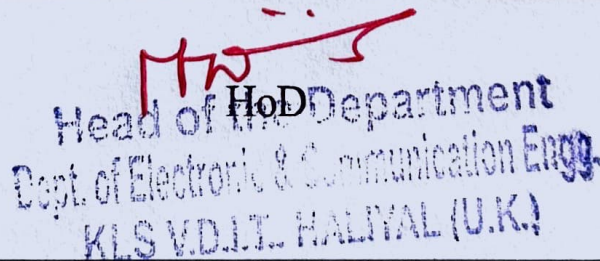 HoD
Head of the Department
Dept. of Electronic & Communication Engg.
KLS V.D.I.T.. HALIYAL (U.K.)